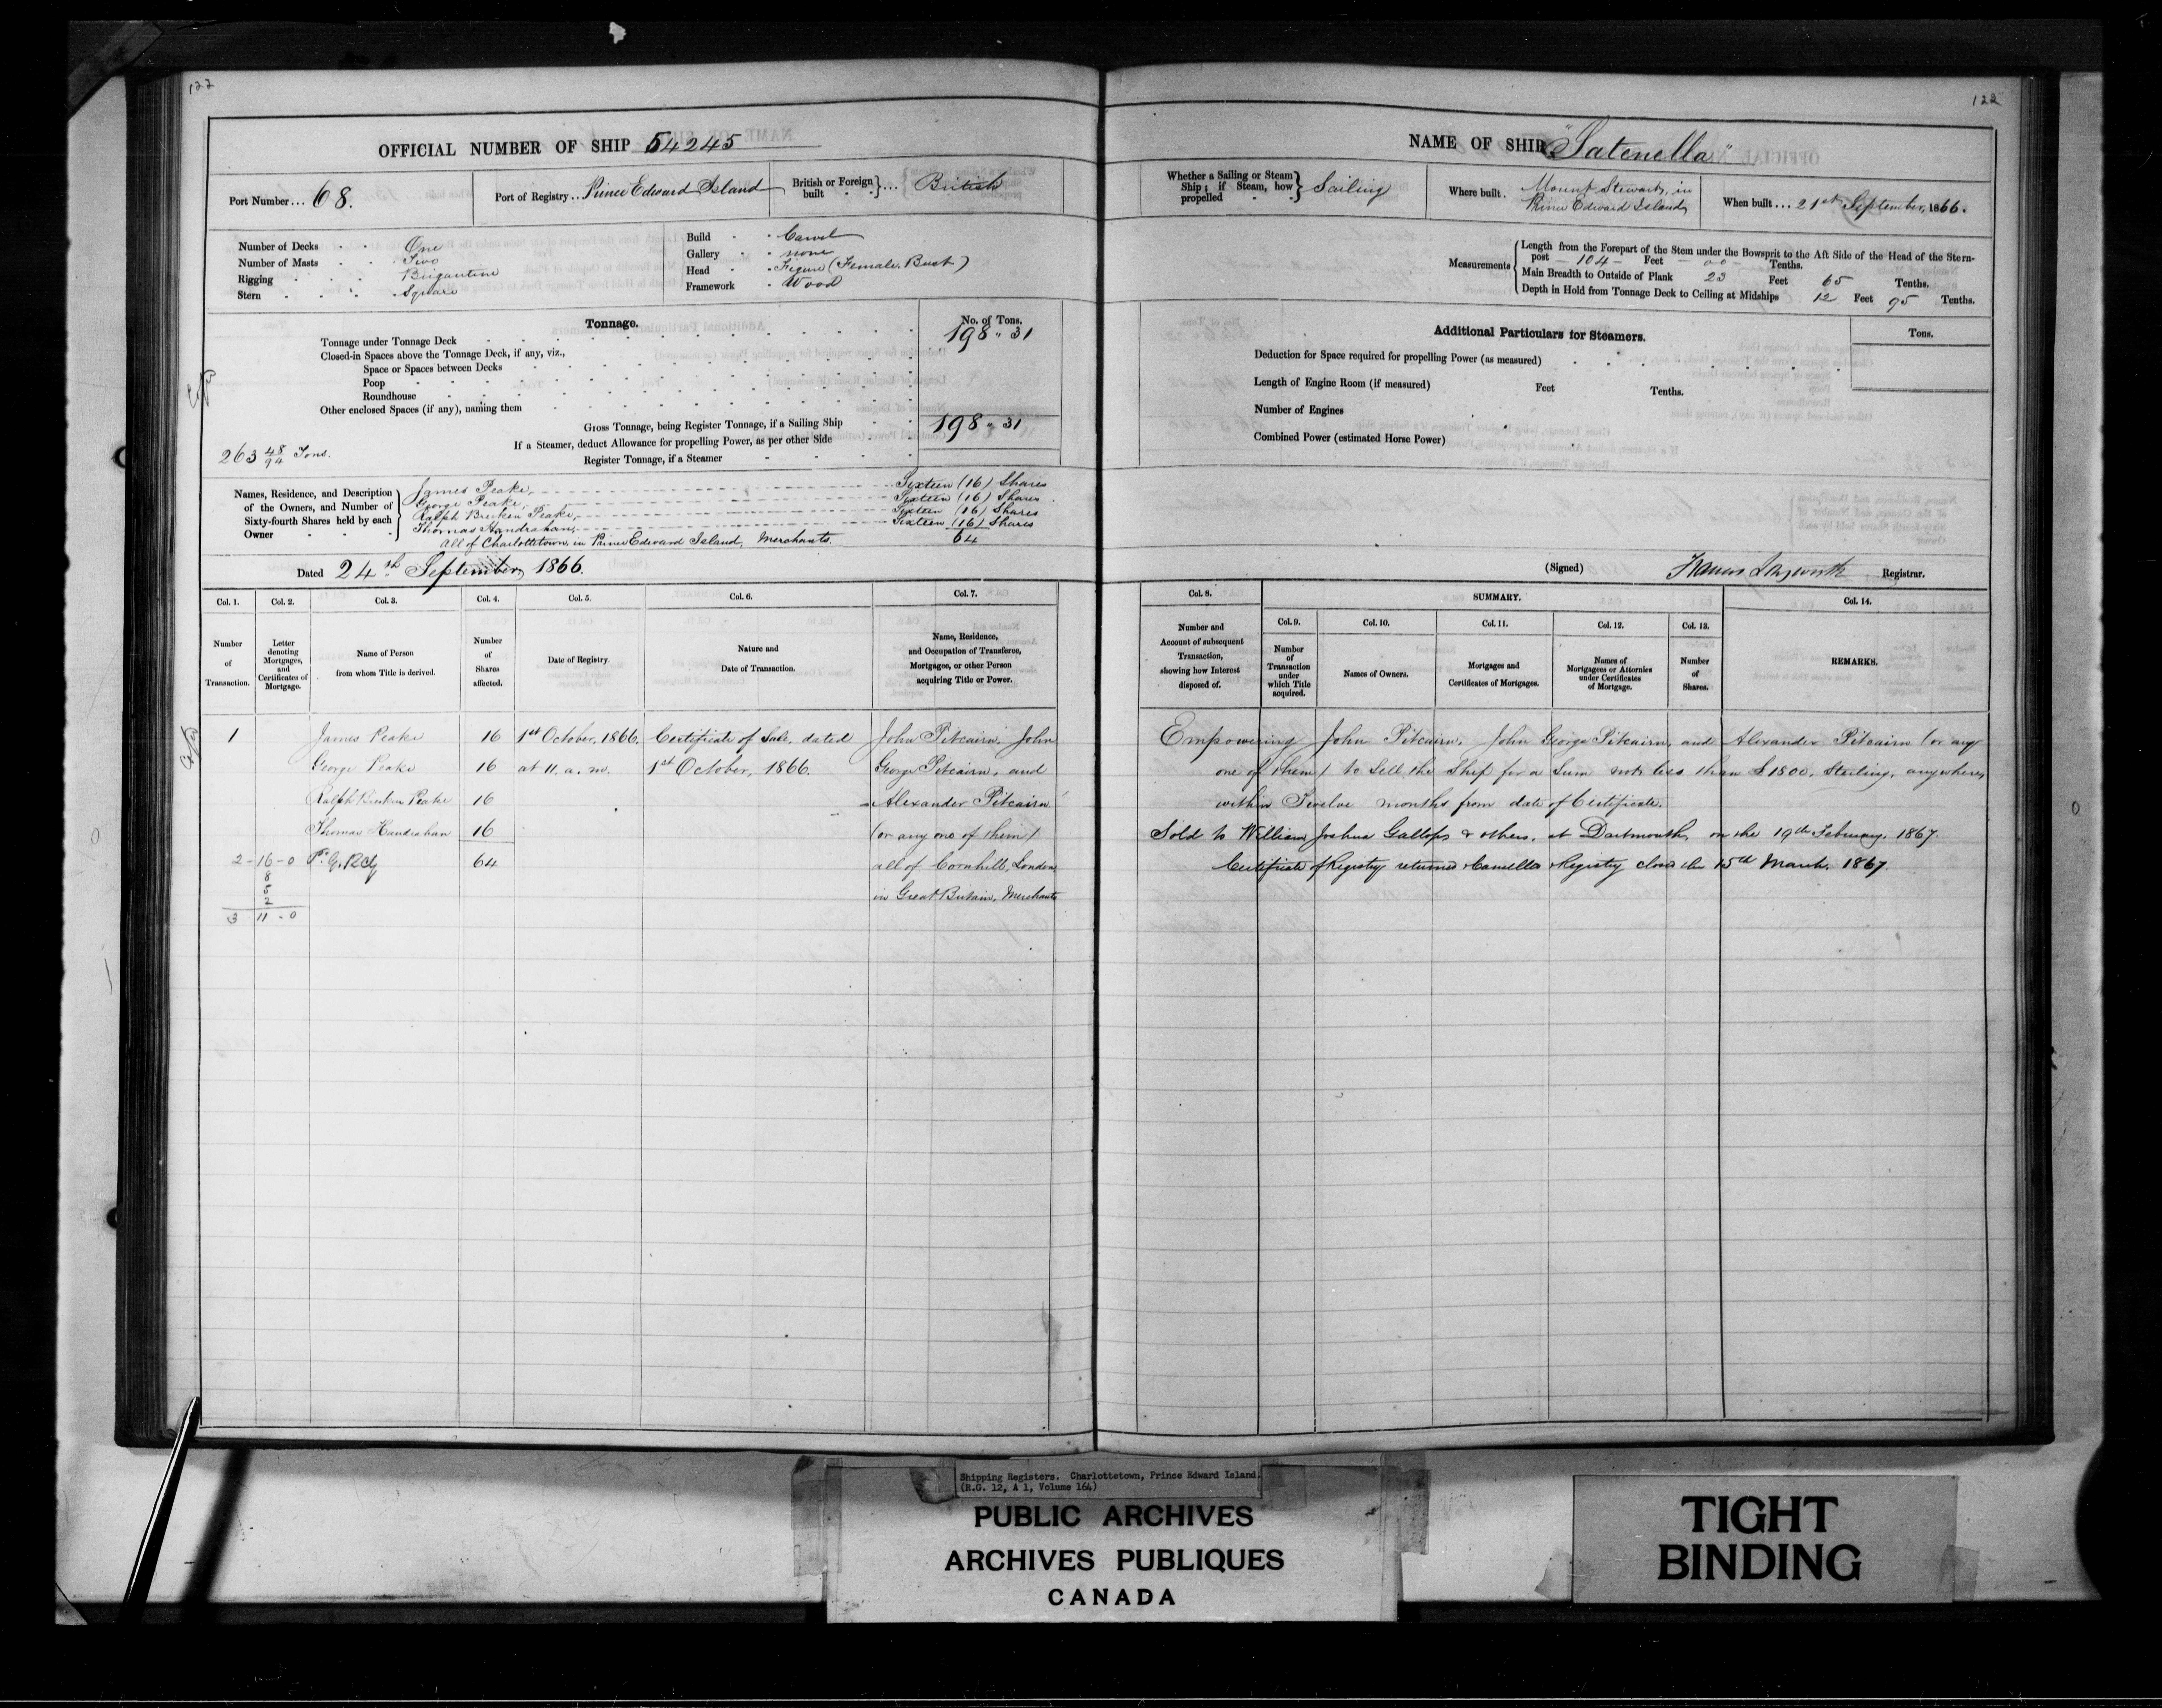 122
OFFICIAL NUMBER OF SHIP 54245
Port Number... 68.
Port of Registry.. Prince Edward Island
British or Foreign built } ... British
Number of Decks One
Number of Masts Two
Rigging Brigantine
Stern Square
Build Carvel
Gallery none
Head Figure (Female Bust)
Framework Wood
Tonnage.
No. of Tons.
Tonnage under Tonnage Deck 198 " 31
Closed-in Spaces above the Tonnage Deck, if any, viz.,
Space or Spaces between Decks
Poop
Roundhouse
Other enclosed Spaces (if any), naming them
Gross Tonnage, being Register Tonnage, if a Sailing Ship 198 " 31
If a Steamer, deduct Allowance for propelling Power, as per other Side
Register Tonnage, if a Steamer
263 48/94 Tons.
Names, Residence, and Description of the Owners, and Number of Sixty-fourth Shares held by each Owner
James Peake, Sixteen (16) Shares
George Peake, Sixteen (16) Shares
Ralph Brecken Peake, Sixteen (16) Shares
Thomas Handrahan, Sixteen (16) Shares
all of Charlottetown, in Prince Edward Island, Merchants. 64
Dated 24th September, 1866.
Col. 1. Col. 2. Col. 3. Col. 4. Col. 5. Col. 6. Col. 7.
Number of Transaction.
Letter denoting Mortgages, and Certificates of Mortgage.
Name of Person from whom Title is derived.
Number of Shares affected.
Date of Registry.
Nature and Date of Transaction.
Name, Residence, and Occupation of Transferee, Mortgagee, or other Person acquiring Title or Power.
1 James Peake 16 1st October, 1866. Certificate of Sale, dated John Pitcairn, John
George Peake 16 at 11. a.m. 1st October, 1866. George Pitcairn, and
Ralph Brecken Peake 16 Alexander Pitcairn
Thomas Handrahan 16 (or any one of them)
2-16-0 64 all of Cornhill, London,
8
5
2 in Great Britain, Merchants
3 11-0
122
NAME OF SHIP "Satenella"
Whether a Sailing or Steam Ship; if Steam, how propelled } Sailing
Where built. Mount Stewart, in
Prince Edward Island
When built ... 21st September, 1866.
Measurements
Length from the Forepart of the Stem under the Bowsprit to the Aft Side of the Head of the Stern-
post - 104 - Feet - 00 - Tenths.
Main Breadth to Outside of Plank 23 Feet 65 Tenths.
Depth in Hold from Tonnage Deck to Ceiling at Midships 12 Feet 95 Tenths.
Additional Particulars for Steamers.
Tons.
Deduction for Space required for propelling Power (as measured)
Length of Engine Room (if measured) Feet Tenths.
Number of Engines
Combined Power (estimated Horse Power)
(Signed) Francis Longworth Registrar.
Col. 8. SUMMARY. Col. 14.
Col. 9. Col. 10. Col. 11. Col. 12. Col. 13.
Number and Account of subsequent Transaction, showing how Interest disposed of.
Number of Transaction under which Title acquired.
Names of Owners.
Mortgages and Certificates of Mortgages.
Names of Mortgagees or Attornies under Certificates of Mortgage.
Number of Shares.
REMARKS.
Empowering John Pitcairn, John George Pitcairn, and Alexander Pitcairn (or any
one of them) to Sell the Ship for a Sum not less than £1800, Sterling, anywhere,
within Twelve months from date of Certificate.
Sold to William Joshua Gallops & others, at Dartmouth, on the 19th February, 1867.
Certificate of Registry returned & Cancelled & Registry closed this 15th March, 1867.
Shipping Registers. Charlottetown, Prince Edward Island.
(R.G. 12, A 1, Volume 164)
PUBLIC ARCHIVES
ARCHIVES PUBLIQUES
CANADA
TIGHT
BINDING